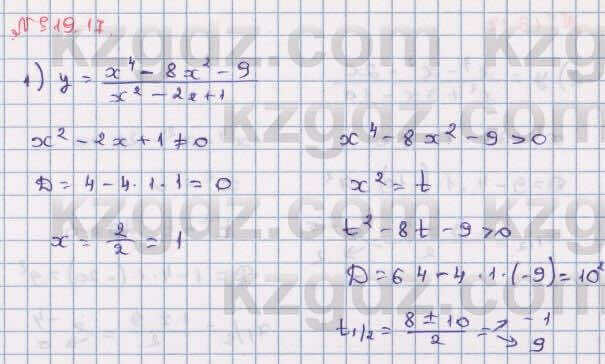 № 319.17.
1) y = (x⁴ − 8x² − 9)/(x² − 2x + 1)
x² − 2x + 1 ≠ 0
D = 4 − 4·1·1 = 0
x = 2/2 = 1
x⁴ − 8x² − 9 > 0
x² = t
t² − 8t − 9 > 0
D = 64 − 4·1·(−9) = 10²
t₁/₂ = (8 ± 10)/2 = ↗ −1 ↘ 9
kzgdz.com
kzgdz.com
kzgdz.com